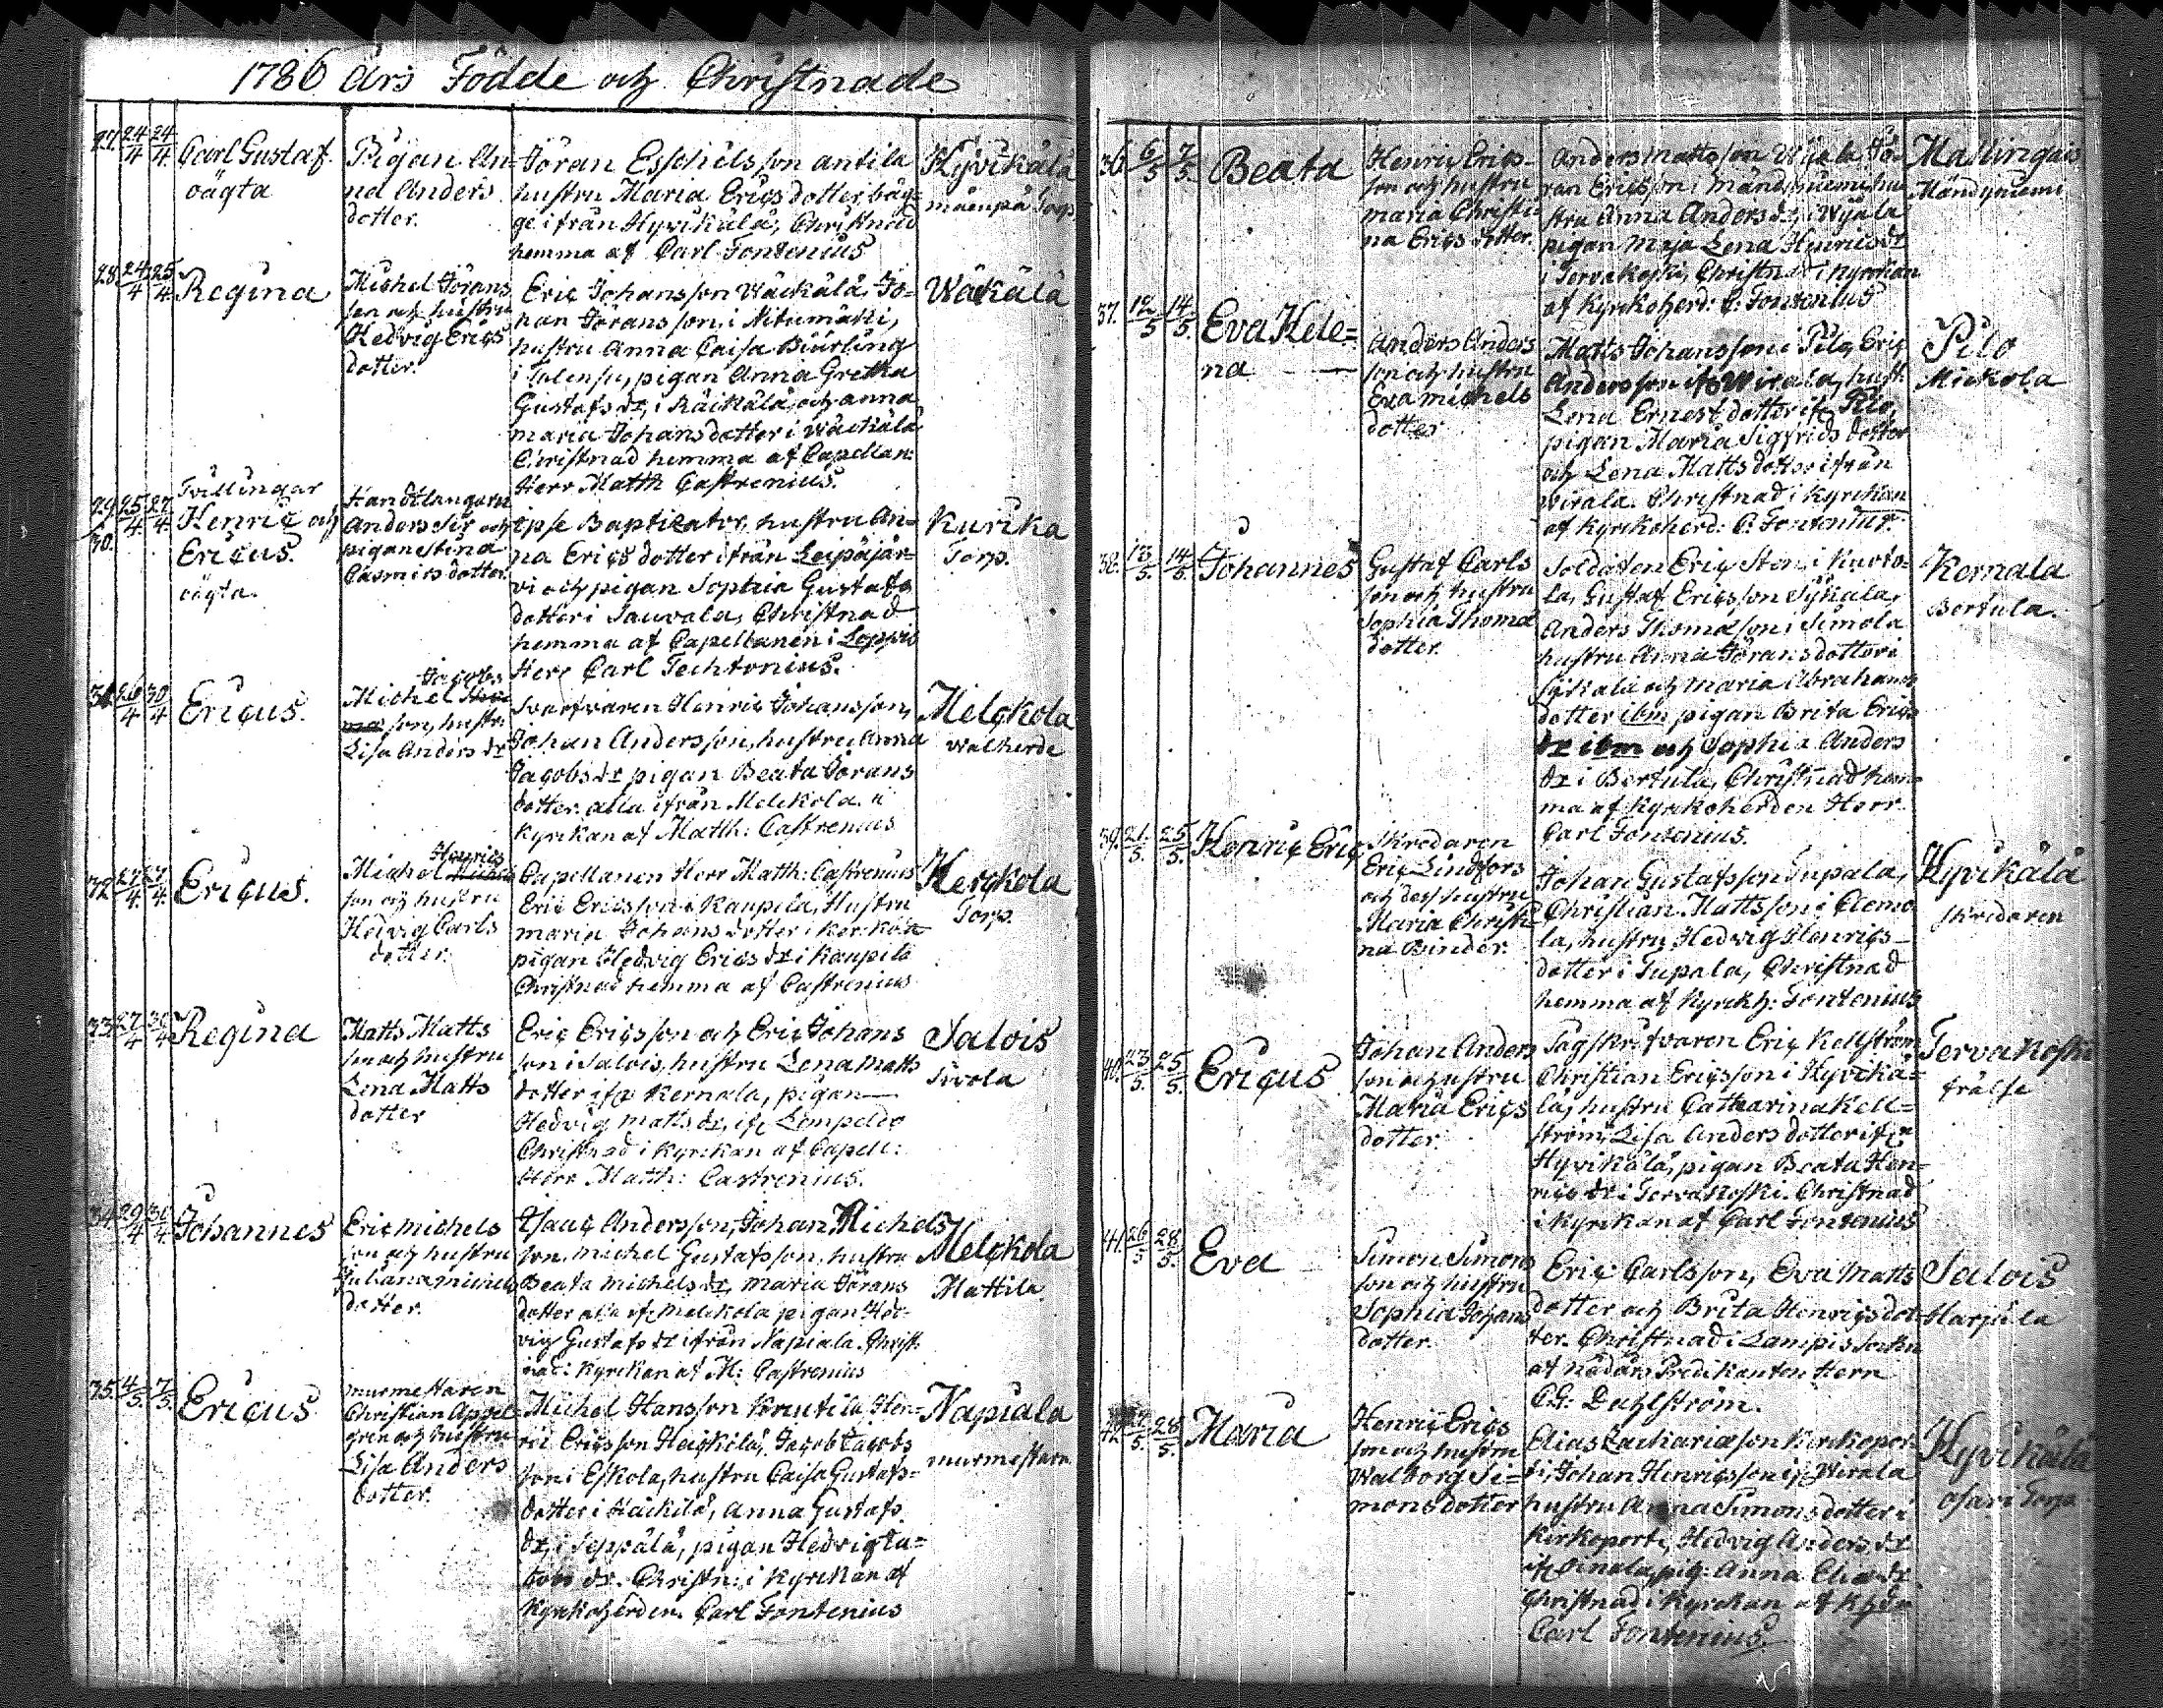 1786 års Födde och Christnade
27. 24/4 24/4 Carl Gustaf oägta
Pigan An-
na Anders
dotter.
Jöran Esschilsson antila
hustru Maria Ericsdotter, bäg-
ge ifrån Hyvikälä, Christnad
hemma af Carl Fontenius
Hyvikälä
Torp
28. 24/4 25/4 Regina
Michel Jörans
son och hustru
Hedvig Erics
dotter.
Eric Johansson Wäckälä, Jo-
han Jöransson i Nitumäki,
hustru Anna Caisa Biurling
i Talensu, pigan Anna Gretha
Gustafs dr, i Räikälä, och anna
maria Johansdotter i Wäckälä
Christnad hemma af Capellan:
Herr Matth Castrenius.
Wäkälä
29. 30. 25/4 27/4 Tvillingar
Henric och
Ericus.
oägta.
Handtlangaren
Anders Sir och
pigan Stina
Casmirs dotter.
ipse Baptizator, hustru An-
na Ericsdotter ifrån Leipäjär-
vi och pigan Sophia Gustafs
dotter i Sauvala, Christnad
hemma af Capellanen i Loppis
Herr Carl Techtonius.
Kurika
Torp.
31. 26/4 30/4 Ericus.
Jacobs
Michel
son, hustr.
Lisa Anders dr
Svarfvaren Henric Johansson,
Johan Andersson, hustru Anna
Jacobs dr pigan Beata Jörans
dotter. alla ifrån Melckola. i
kyrkan af Matth: Castrenius
Melckola
Walherde
32 27/4 27/4 Ericus.
Henrics
Michel
son och hustru
Hedvig Carls
dotter.
Capellanen Herr Matth: Castrenius
Eric Ericsson i Kaupila, Hustru
maria Johans dotter i Kerckola
pigan Hedvig Erics dr i Kaupila
Christnad hemma af Castrenius
Kerckola
Torp.
33. 27/4 30/4 Regina
Matts Matts
son och hustru
Lena Matts
dotter
Eric Ericsson och Eric Johans
son i Salois, hustru Lena Matts
dotter ifr Kernala, pigan
Hedvig Matts dr, ifr Lempeldo
Christnad i kyrkan af Capell:
Herr Matth: Castrenius.
Salois
Sivola
34. 29/4 Johannes
Eric Michels
son och hustru
Juliana Michels
dotter.
Isaac Andersson, Johan Michels
son, Michel Gustafsson, hustru
Beata Michels dr, maria Jörans
dotter alla ifr Melckola pigan Hed-
vig Gustafs dr ifrån Napiala. Christ-
nad i kyrkan af M: Castrenius
Melckola
Mattila
35. 4/5 7/5. Ericus
murmestaren
Christian Appel
gren och hustru
Lisa Anders
dotter.
Michel Hansson Korutila, Hen-
ric Ericsson Heickilä, Jacob Jacobs
son i Eskola, hustru Caisa Gustafs-
dotter i Häickilä, Anna Gustafs
dr, i Seppälä, pigan Hedvig Ja-
cobs dr. Christn: i kyrckan af
kyrkoherden Carl Fontenius
Napiala
murmestarn
36. 6/5 7/5. Beata
Henric Erics-
son och hustru
maria Christi-
na Erics dotter.
Anders Mattsson Wyala, Jö-
ran Ericsson i Mändyniemi hu
stru Anna Anders dr, i Wyala
pigan Maja Lena Henrics dr
i Tervakoski, Christnad i kyrkan
af kyrkoherd: C: Fontenius
Mallingais
Mändyniemi
37. 12/5 14/5. Eva Hele=
na
Anders Anders
son och hustru
Eva Michels
dotter
Matts Johansson i Pilo, Eric
Andersson ifr Wirala, hustr
Lena Ernest dotter ifr Pilo,
pigan Maria Sigfrids dotter
och Lena Matts dotter ifrån
Wirala. Christnad i kyrckan
af kyrkoherd: C. Fontenius.
Pilo
Mickola
38. 13/5. 14/5. Johannes
Gustaf Carls
son och hustru
Sophia Thomæ
dotter.
Soldaten Eric Sten, i Kurto-
la, Gustaf Ericsson Sykala,
Anders Thomasson i Simola
hustru Anna Jöransdotter i
Sykala och Maria Abrahams
dotter ibm pigan Brita Erics
dr ibm och Sophia Anders
dr i Bertula, Christnad hem
ma af kyrkoherden Herr
Carl Fontenius.
Kernala
Bertula.
39. 21/5. 25/5. Henric Eric
Skredaren
Eric Lindfors
och dess hustru
Maria Christi-
na Binder.
Johan Gustafsson Tupala,
Christian Mattsson i Clemo
la, hustru Hedvig Henrics-
dotter i Tupala, Christnad
hemma af kyrckh: Fontenius
Hyvikälä
skredaren
40. 23/5. 25/5. Ericus
Johan Anders
son och hustru
Maria Erics
dotter.
Sågskrifvaren Eric Kellström
Christian Ericsson i Hyvikä-
lä, hustru Catharina Kell=
ström, Lisa Anders dotter ifrn
Hyvikälä, pigan Beata Hen-
rics dr i Tervakoski. Christnad
i kyrckan af Carl Fontenius
Tervakoski
frälse
41. 26/5 28/5. Eva
Simon Simons
son och hustru
Sophia Johans
dotter.
Eric Carlsson, Eva Matts
dotter och Brita Henricsdot-
ter. Christnad i Lampis Sockn
af Nådårs Predikanten Herrn
C.G: Dahlström.
Salois
Harpila
42. 28/5. Maria
Henric Erics
son och hustru
Walborg Si-
mons dotter
Elias Zachariæson Kirckopor-
ti, Johan Henricsson ifr Wirala
hustru Anna Simons dotter i
Kirkoporti, Hedvig Anders dr
Anna Eliæ dr
Christnad i kyrckan af
Carl Fontenius.
Hyvikälä
Torp